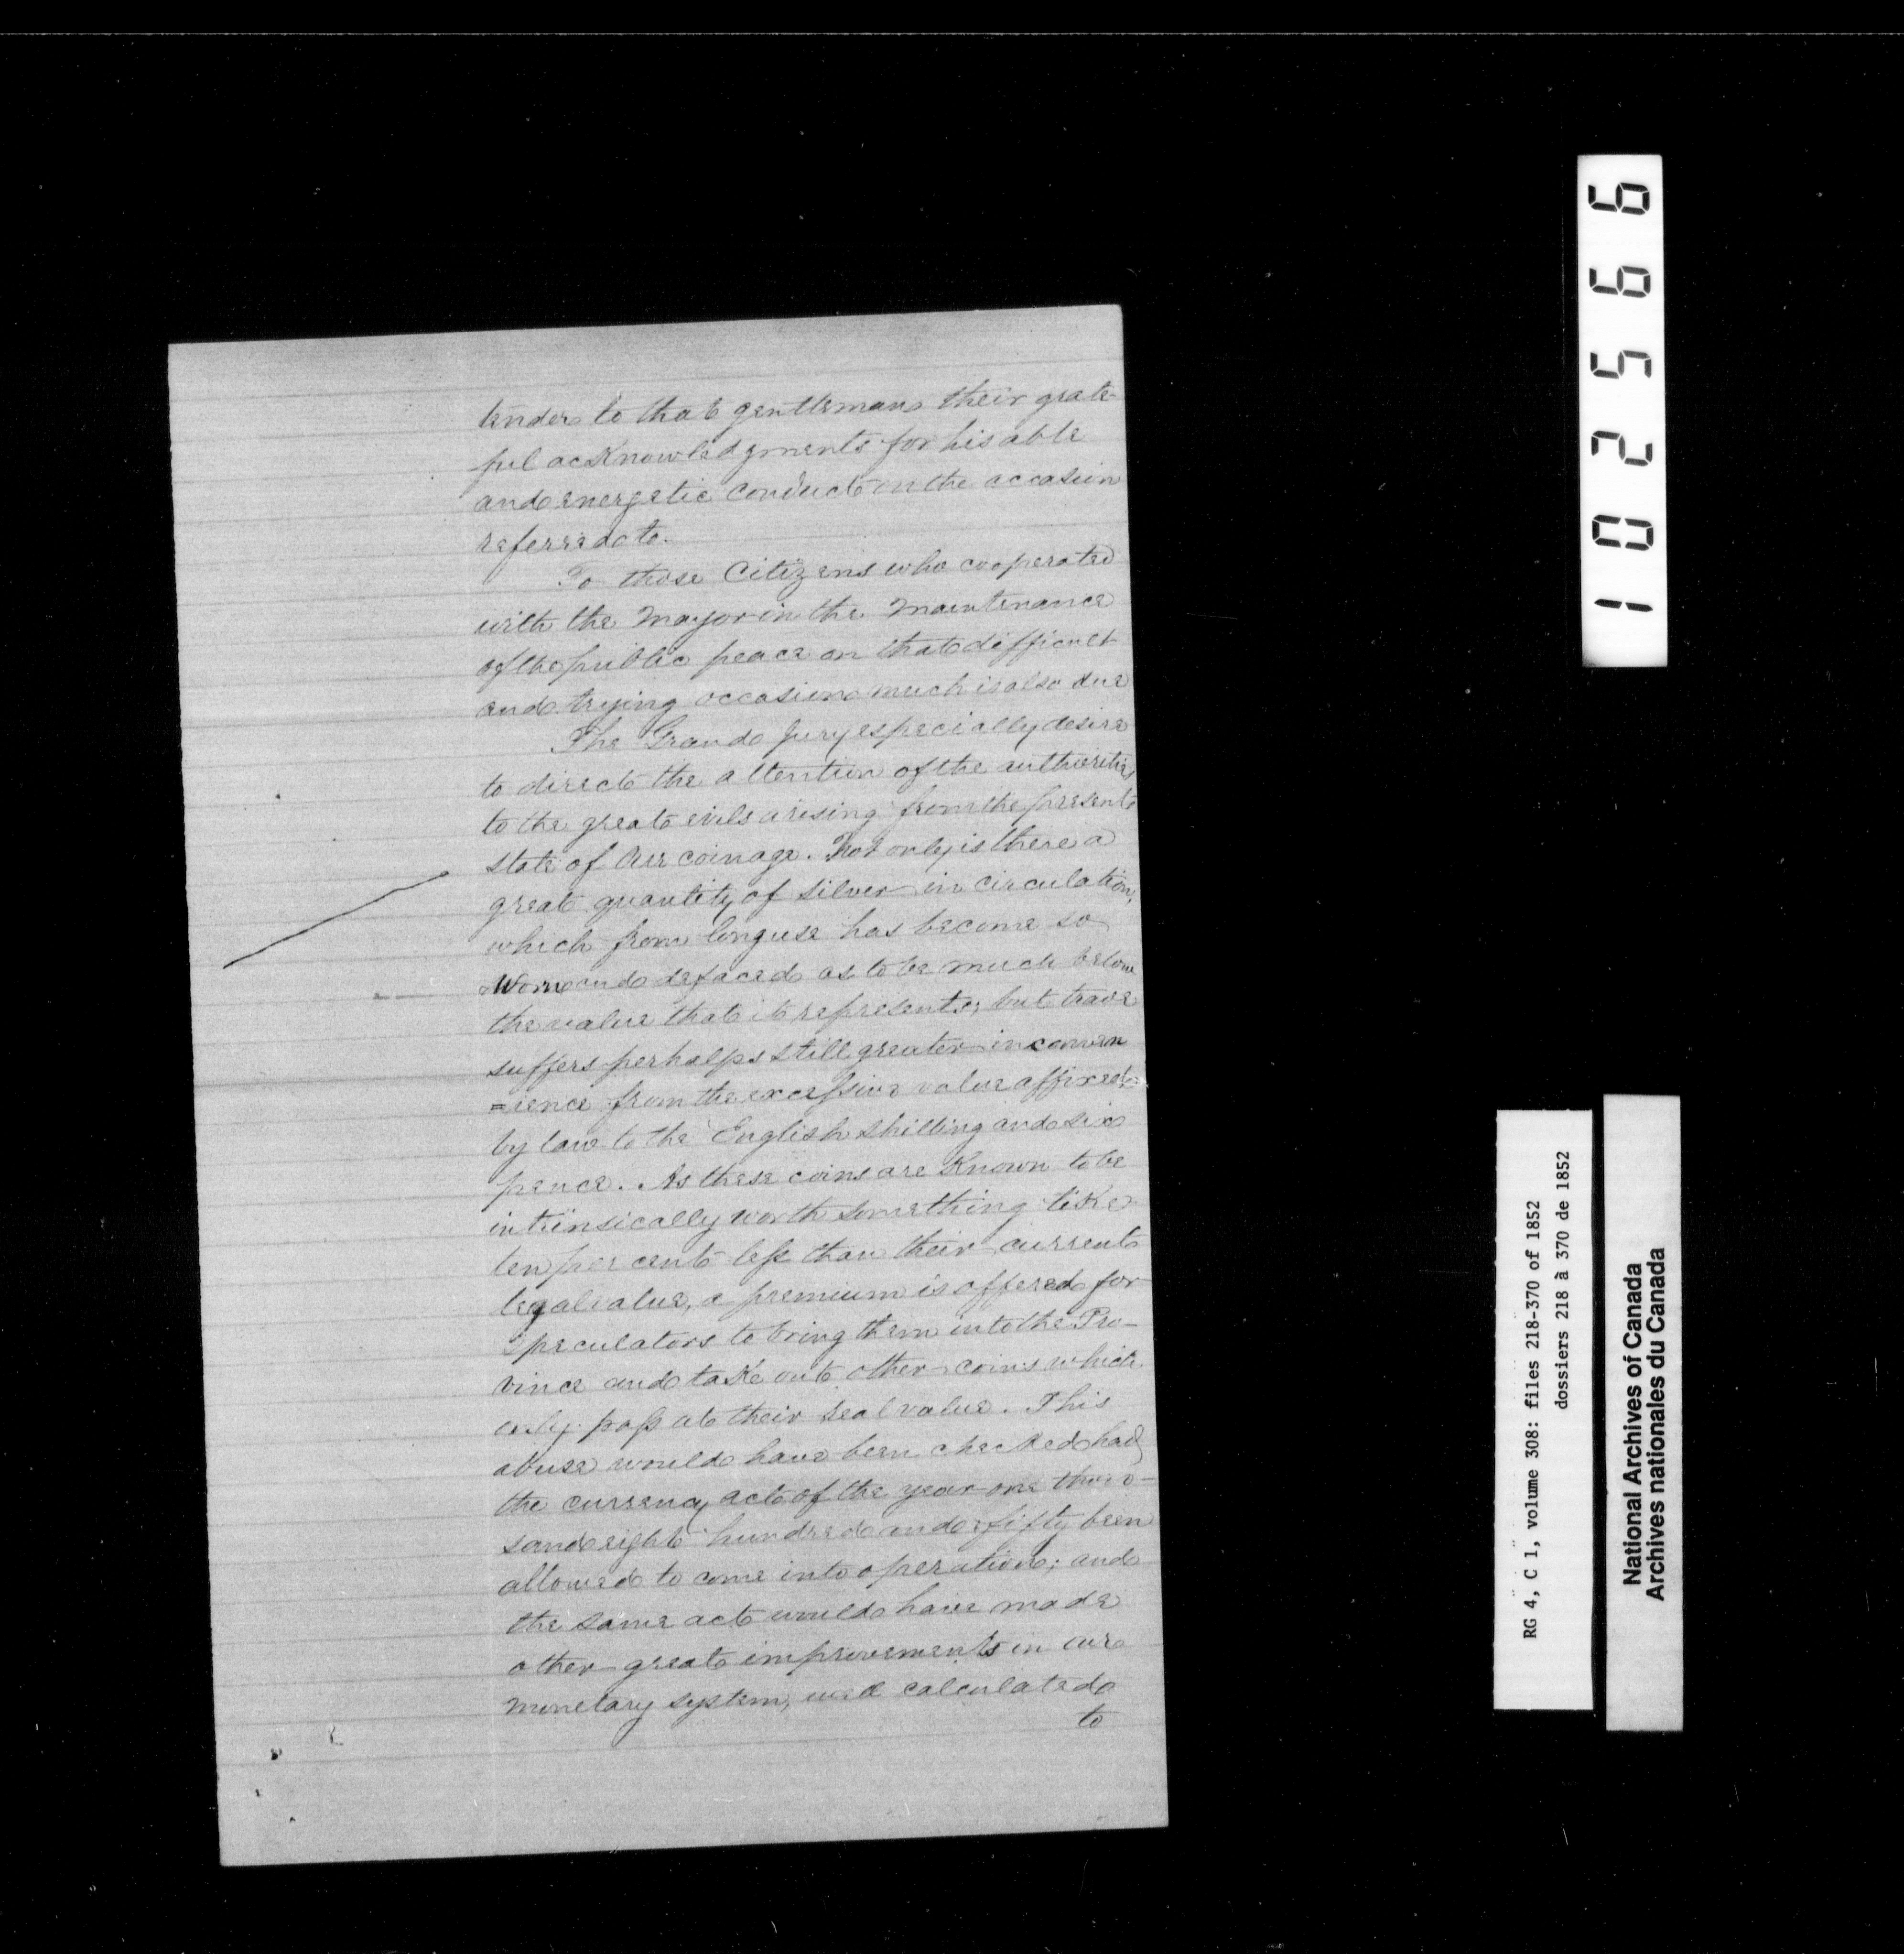 tender to that gentleman their grate-
ful acknowledgments for his able
and energetic conduct on the occasion
referred to.
To those Citizens who cooperated
with the Mayor in the maintenance
of the public peace on that difficult
and trying occasion much is also due
The Grand Jury especially desire
to direct the attention of the authorities
to the great evils arising from the present
state of our coinage. Not only is there a
great quantity of silver in circulation,
which from long use has become so
Worn and defaced as to be much below
the value that it represents; but trade
suffers perhalps still greater inconven
=ience from the excessive value affixed
by law to the English shilling and six
pence. As these coins are Known to be
intrinsically worth something like
ten per cent less than their current
legal value, a premium is offered for
speculators to bring them into the Pro-
vince and take out other coins which
only pass at their real value. This
abuse would have been checked had
the currency act of the year one thou-
sand eight hundred and fifty been
allowed to come into operation; and
the same act would have made
other great improvements in our
monetary system, well calculated
to
102566
RG 4, C 1, volume 308: files 218-370 of 1852
dossiers 218 à 370 de 1852
National Archives of Canada
Archives nationales du Canada